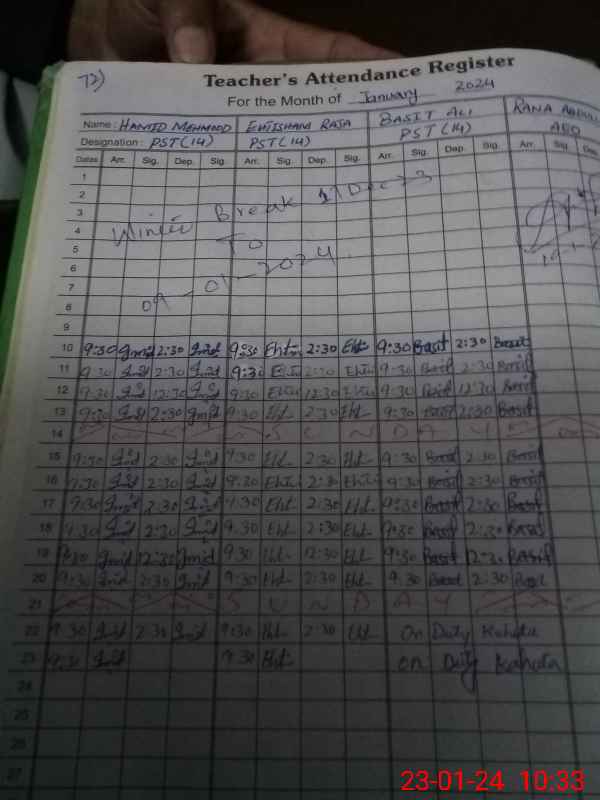 72)
Teacher's Attendance Register
For the Month of January 2024
Name: HAMID MEHMOOD EHTISHAM RAJA BASIT ALI RANA ABDUL
Designation: PST(14) PST(14) PST(14) AEO
Dates Arr. Sig. Dep. Sig. Arr. Sig. Dep. Sig. Arr. Sig. Dep. Sig. Arr. Sig. Dep
1
2
3 Winter Break Dec 23
4
5 To
6
7 09-01-2024
8
9
10 9:30 2:30 9:30 Eht 2:30 Eht 9:30 Basit 2:30 Basit
11 9:30 2:30 9:30 2:30 9:30 Basit 2:30 Basit
12 9:30 12:30 9:30 12:30 9:30 Basit 12:30 Basit
13 9:30 2:30 9:30 Eht 2:30 Eht 9:30 Basit 2:30 Basit
14 SUNDAY
15 9:30 2:30 9:30 Eht 2:30 Eht 9:30 Basit 2:30 Basit
16 9:30 2:30 9:30 2:30 9:30 Basit 2:30 Basit
17 9:30 2:30 9:30 Eht 2:30 Eht 9:30 Basit 2:30 Basit
18 9:30 2:30 9:30 Eht 2:30 Eht 9:30 Basit 2:30 Basit
19 9:30 12:30 9:30 Eht 12:30 Eht 9:30 Basit 12:30 Basit
20 9:30 2:30 9:30 Eht 2:30 Eht 9:30 Basit 2:30 Basit
21 SUNDAY
22 9:30 2:30 9:30 Eht 2:30 Eht On Duty Kahuta
23 9:30 9:30 Eht On Duty Kahuta
24
25
26
27
23-01-24 10:33